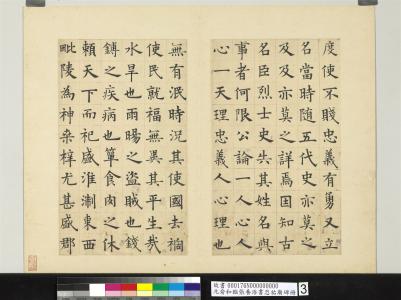 度使不賤忠義有勇又立
名當時隨五代史亦莫之
及及亦莫之詳焉固知古
名臣烈士史失其姓名與
事者何限公論一人心人
心一天理忠義人心理也
無有泯時況其使國去禍
使民就福無異其平生哉
水旱也雨暘之盜賊也錢
鎛之疾病也簞食肉之休
賴天下而祀盛淮淛東西
毗陵為神桑梓尤甚盛郡
故書000176N000000000
3